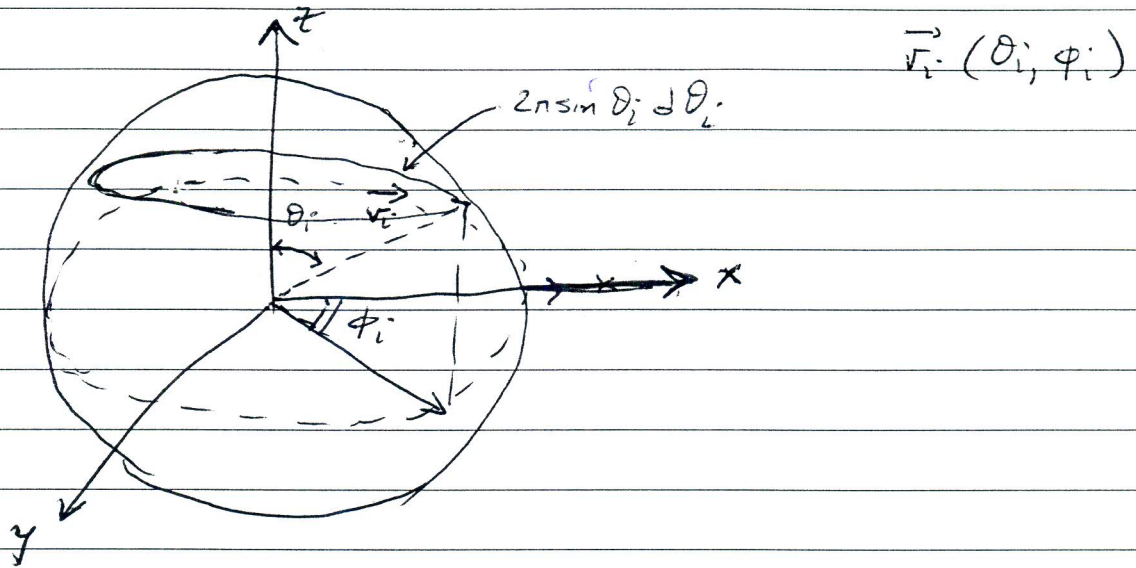 z
→r_i (θ_i, φ_i)
2π sin θ_i dθ_i
θ_i
→r_i
x
φ_i
y